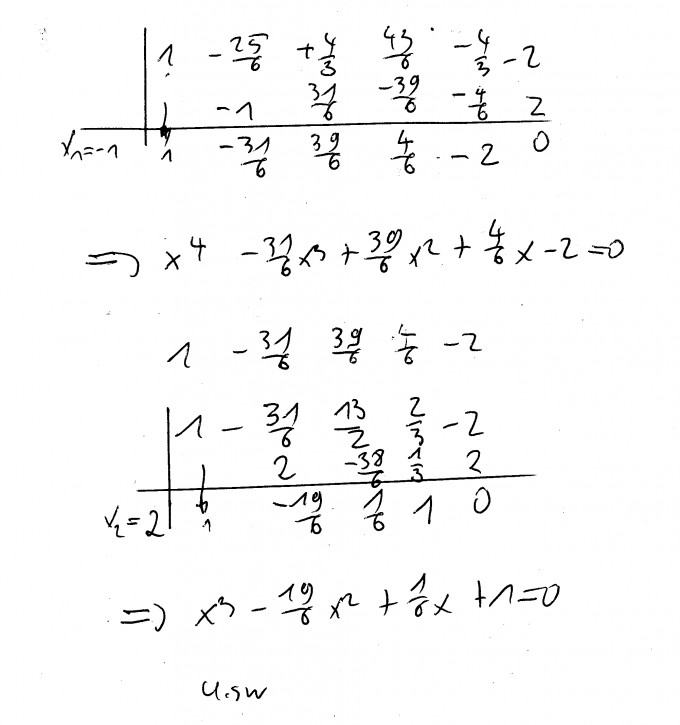 1 -25/6 +4/3 43/6 -4/3 -2
-1 31/6 -39/6 -4/6 2
x₁=-1 1 -31/6 39/6 4/6 -2 0
=> x⁴ -31/6x³ + 39/6x² + 4/6x -2 =0
1 -31/6 39/6 4/6 -2
1 -31/6 13/2 2/3 -2
2 -38/6 1/3 2
x₂=2 1 -19/6 1/6 1 0
=> x³ - 19/6x² + 1/6x +1=0
u.sw